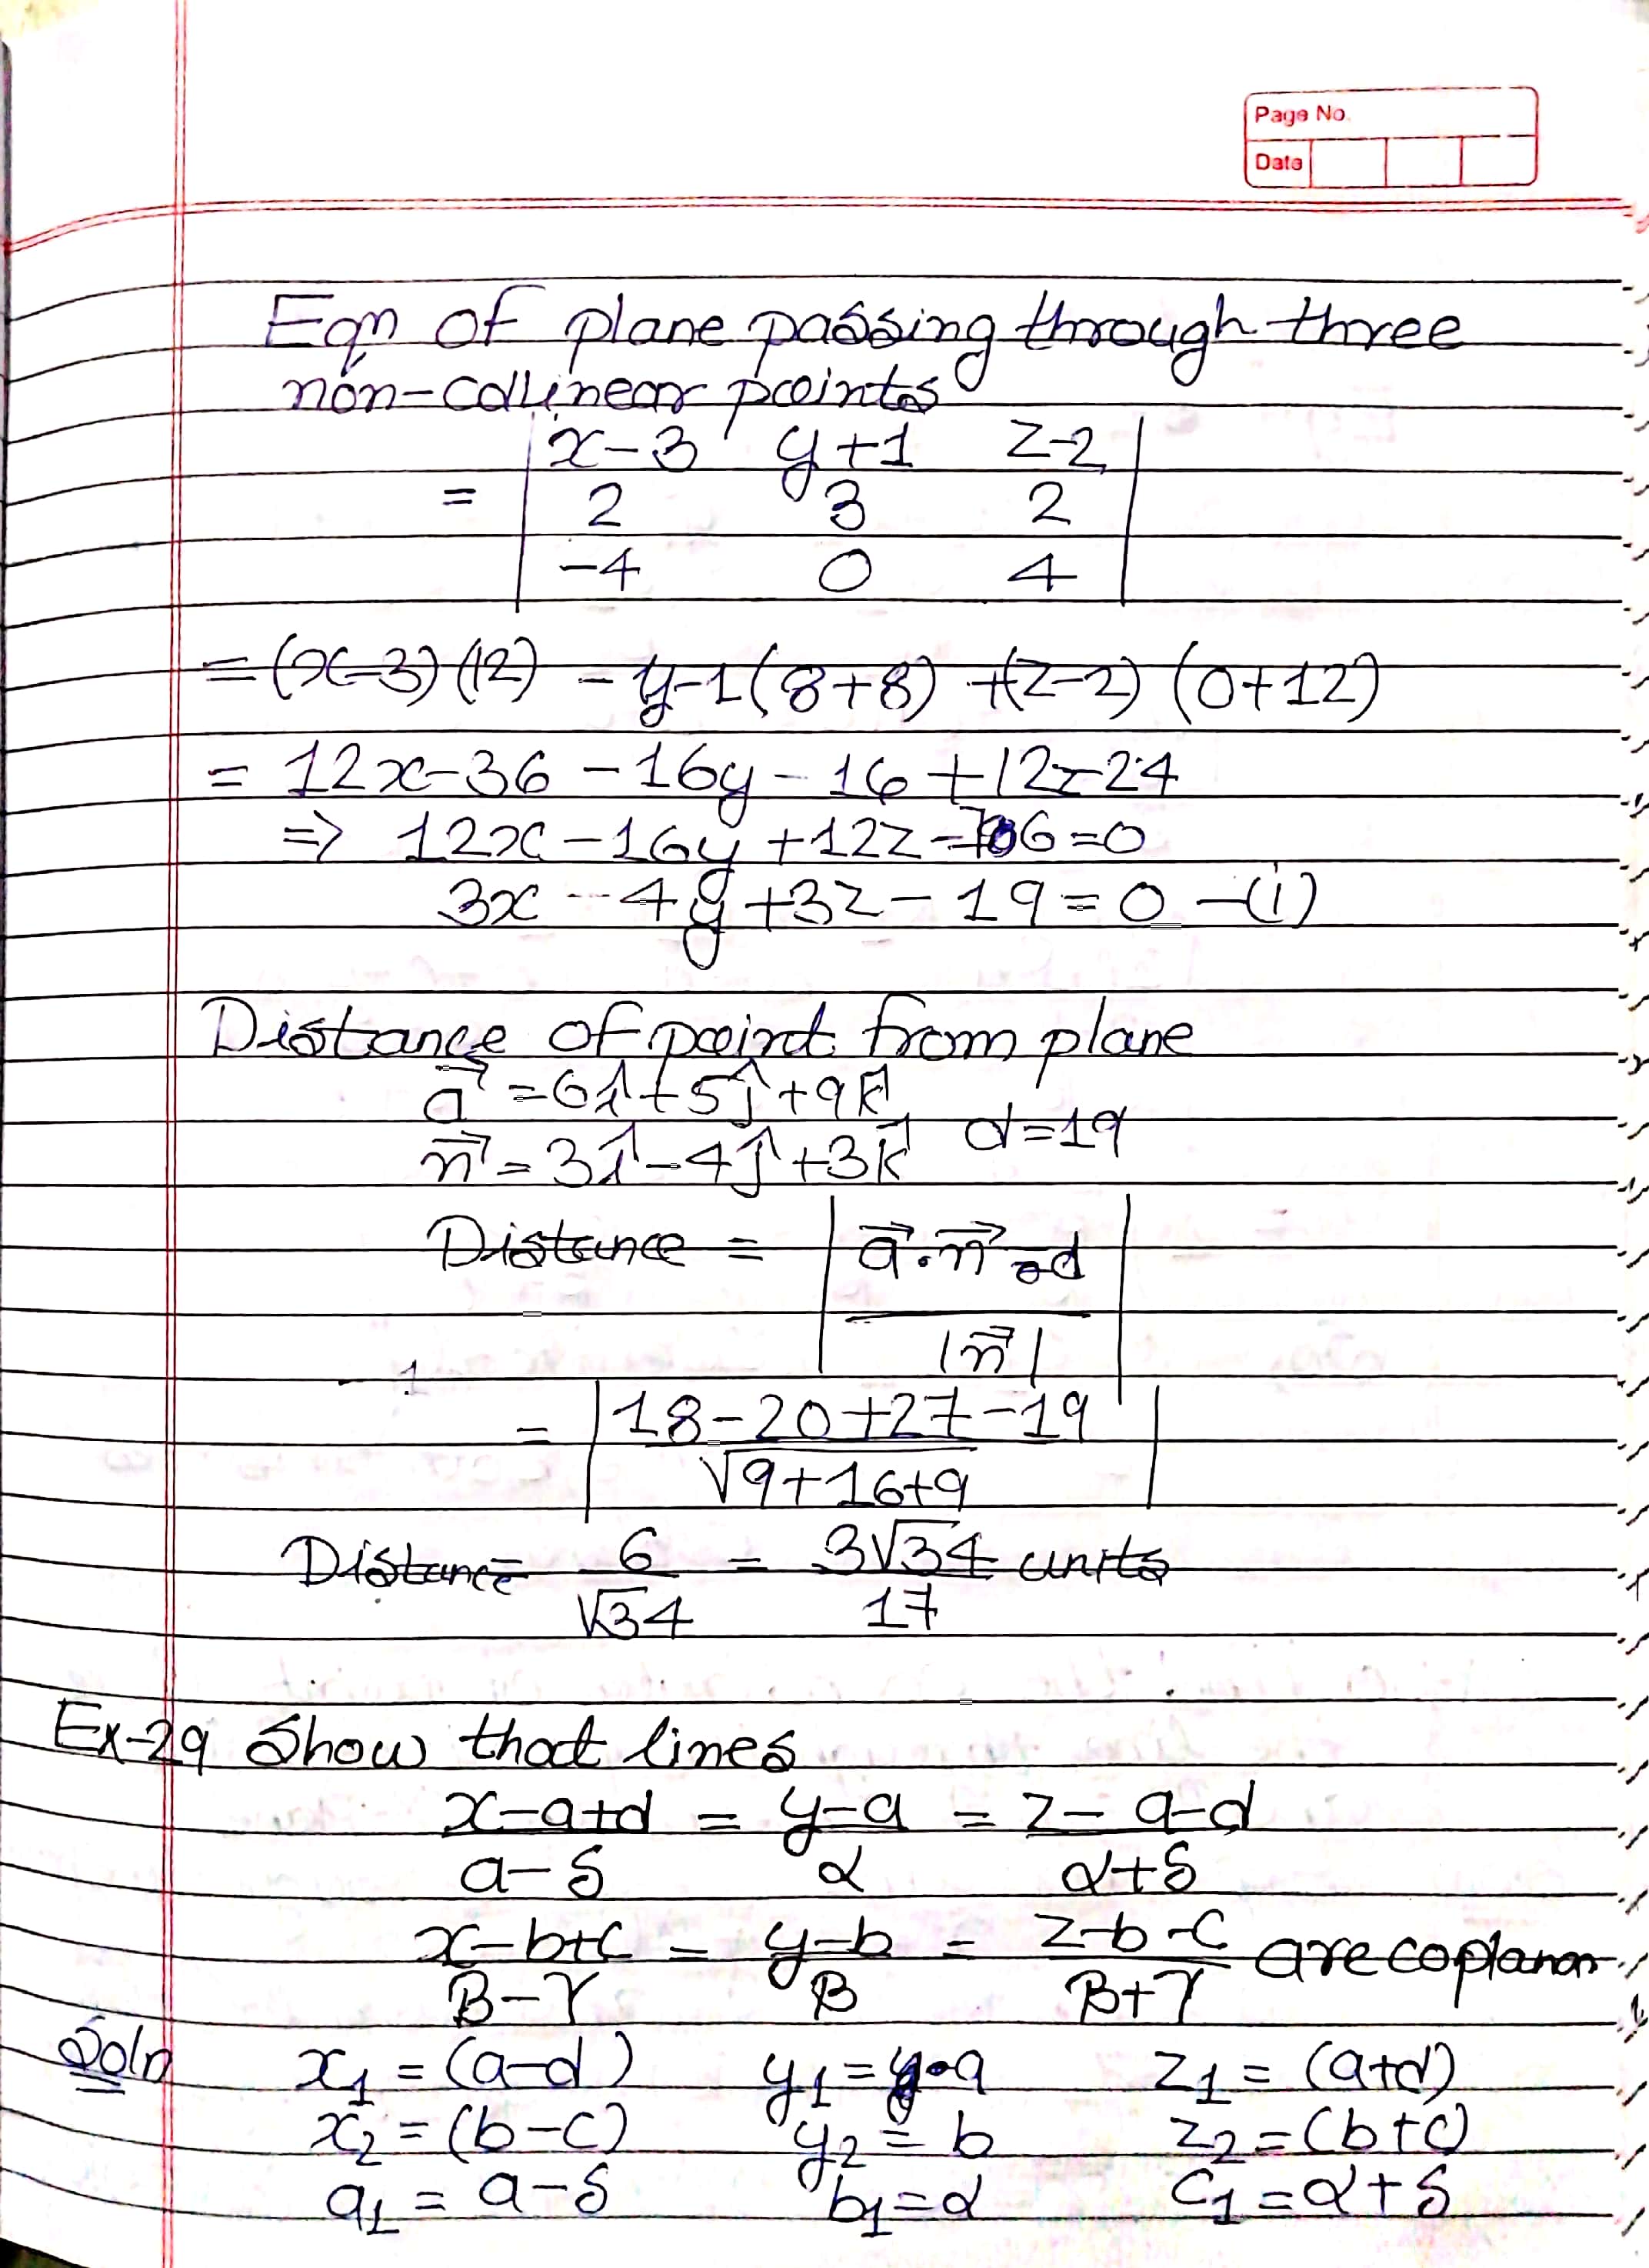 Page No.
Date
Eqn of plane passing through three
non-collinear points
= | x-3 y+1 z-2 |
| 2 3 2 |
| -4 0 4 |
= (x-3)(12) - y-1(8+8) +(z-2) (0+12)
= 12x-36 -16y -16 +12z-24
=> 12x-16y+12z-76=0
3x-4y+3z-19=0 -(i)
Distance of point from plane
a⃗ = 6î+5ĵ+9k̂
n⃗ = 3î-4ĵ+3k̂ d=19
Distance = | a⃗.n⃗ -d |
|n⃗|
= | 18-20+27-19 |
√9+16+9
Distance = 6/√34 = 3√34/17 units
Ex-29 Show that lines
x-a+d = y-a = z-a-d
a-δ α α+δ
x-b+c = y-b = z-b-c are coplanar
B-γ B B+γ
Soln x₁=(a-d) y₁=a z₁=(a+d)
x₂=(b-c) y₂=b z₂=(b+c)
a₁=a-δ b₁=α c₁=α+δ